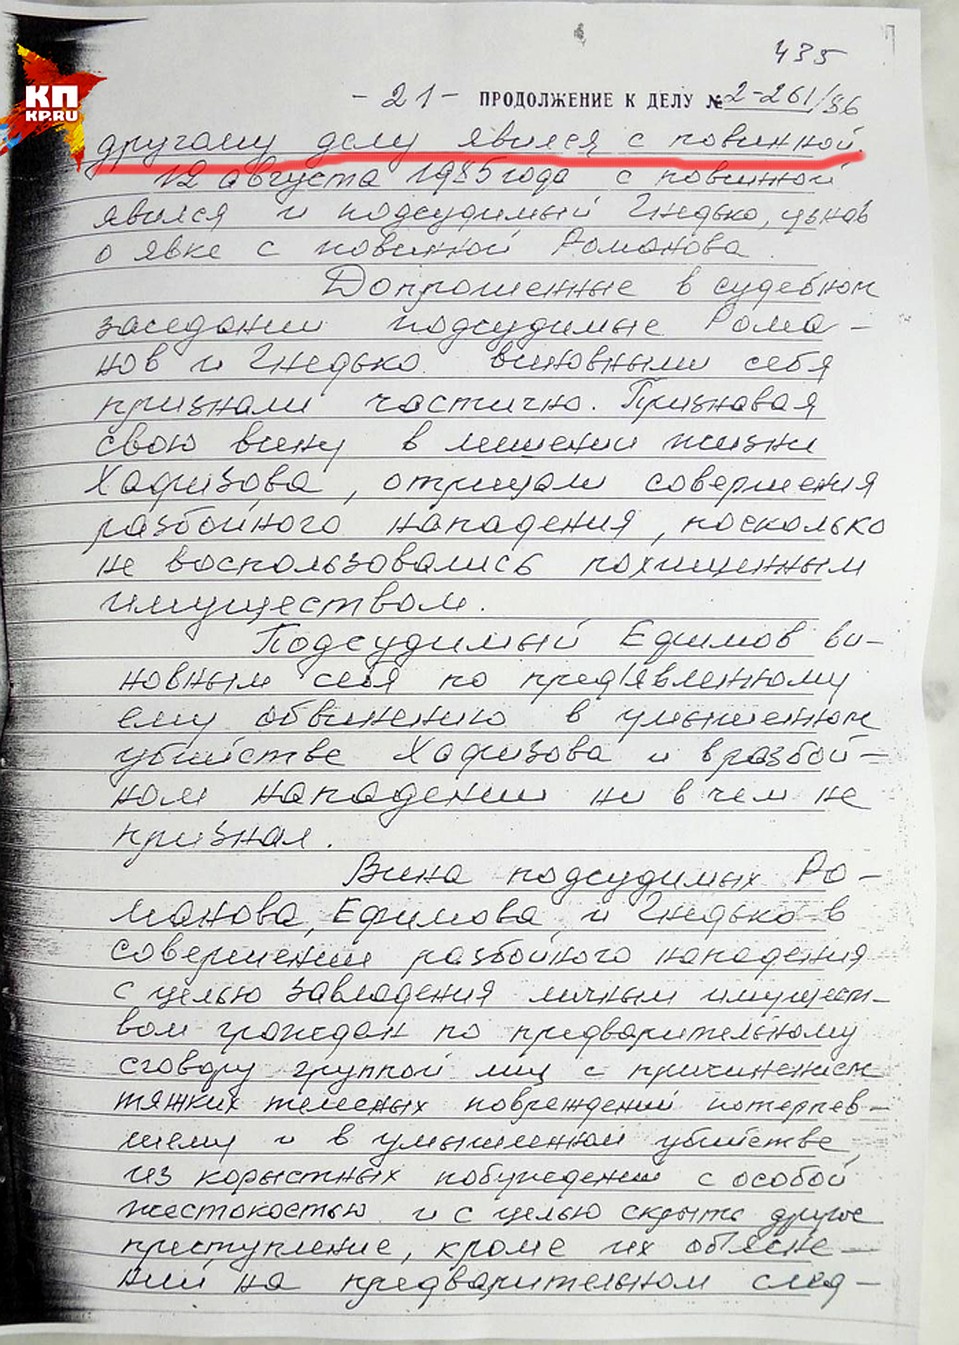 435
КП
KP.RU
- 21 - ПРОДОЛЖЕНИЕ К ДЕЛУ № 2-261/86
другому делу явился с повинной.
12 августа 1985 года с повинной
явился и подсудимый Гнедько, узнав
о явке с повинной Романова.
Допрошенные в судебном
заседании подсудимые Рома-
нов и Гнедько виновными себя
признали частично. Признавая
свою вину в лишении жизни
Хафизова, отрицали совершения
разбойного нападения, поскольку
не воспользовались похищенным
имуществом.
Подсудимый Ефимов ви-
новным себя по предъявленному
ему обвинению в умышленном
убийстве Хафизова и в разбой-
ном нападении ни в чем не
признал.
Вина подсудимых Ро-
манова, Ефимова и Гнедько в
совершении разбойного нападения
с целью завладения личным имущест-
вом граждан по предварительному
сговору группой лиц с причинением
тяжких телесных повреждений потерпев-
шему и в умышленном убийстве,
из корыстных побуждений с особой
жестокостью и с целью скрыть другое
преступление, кроме их объясне-
ний на предварительном след-